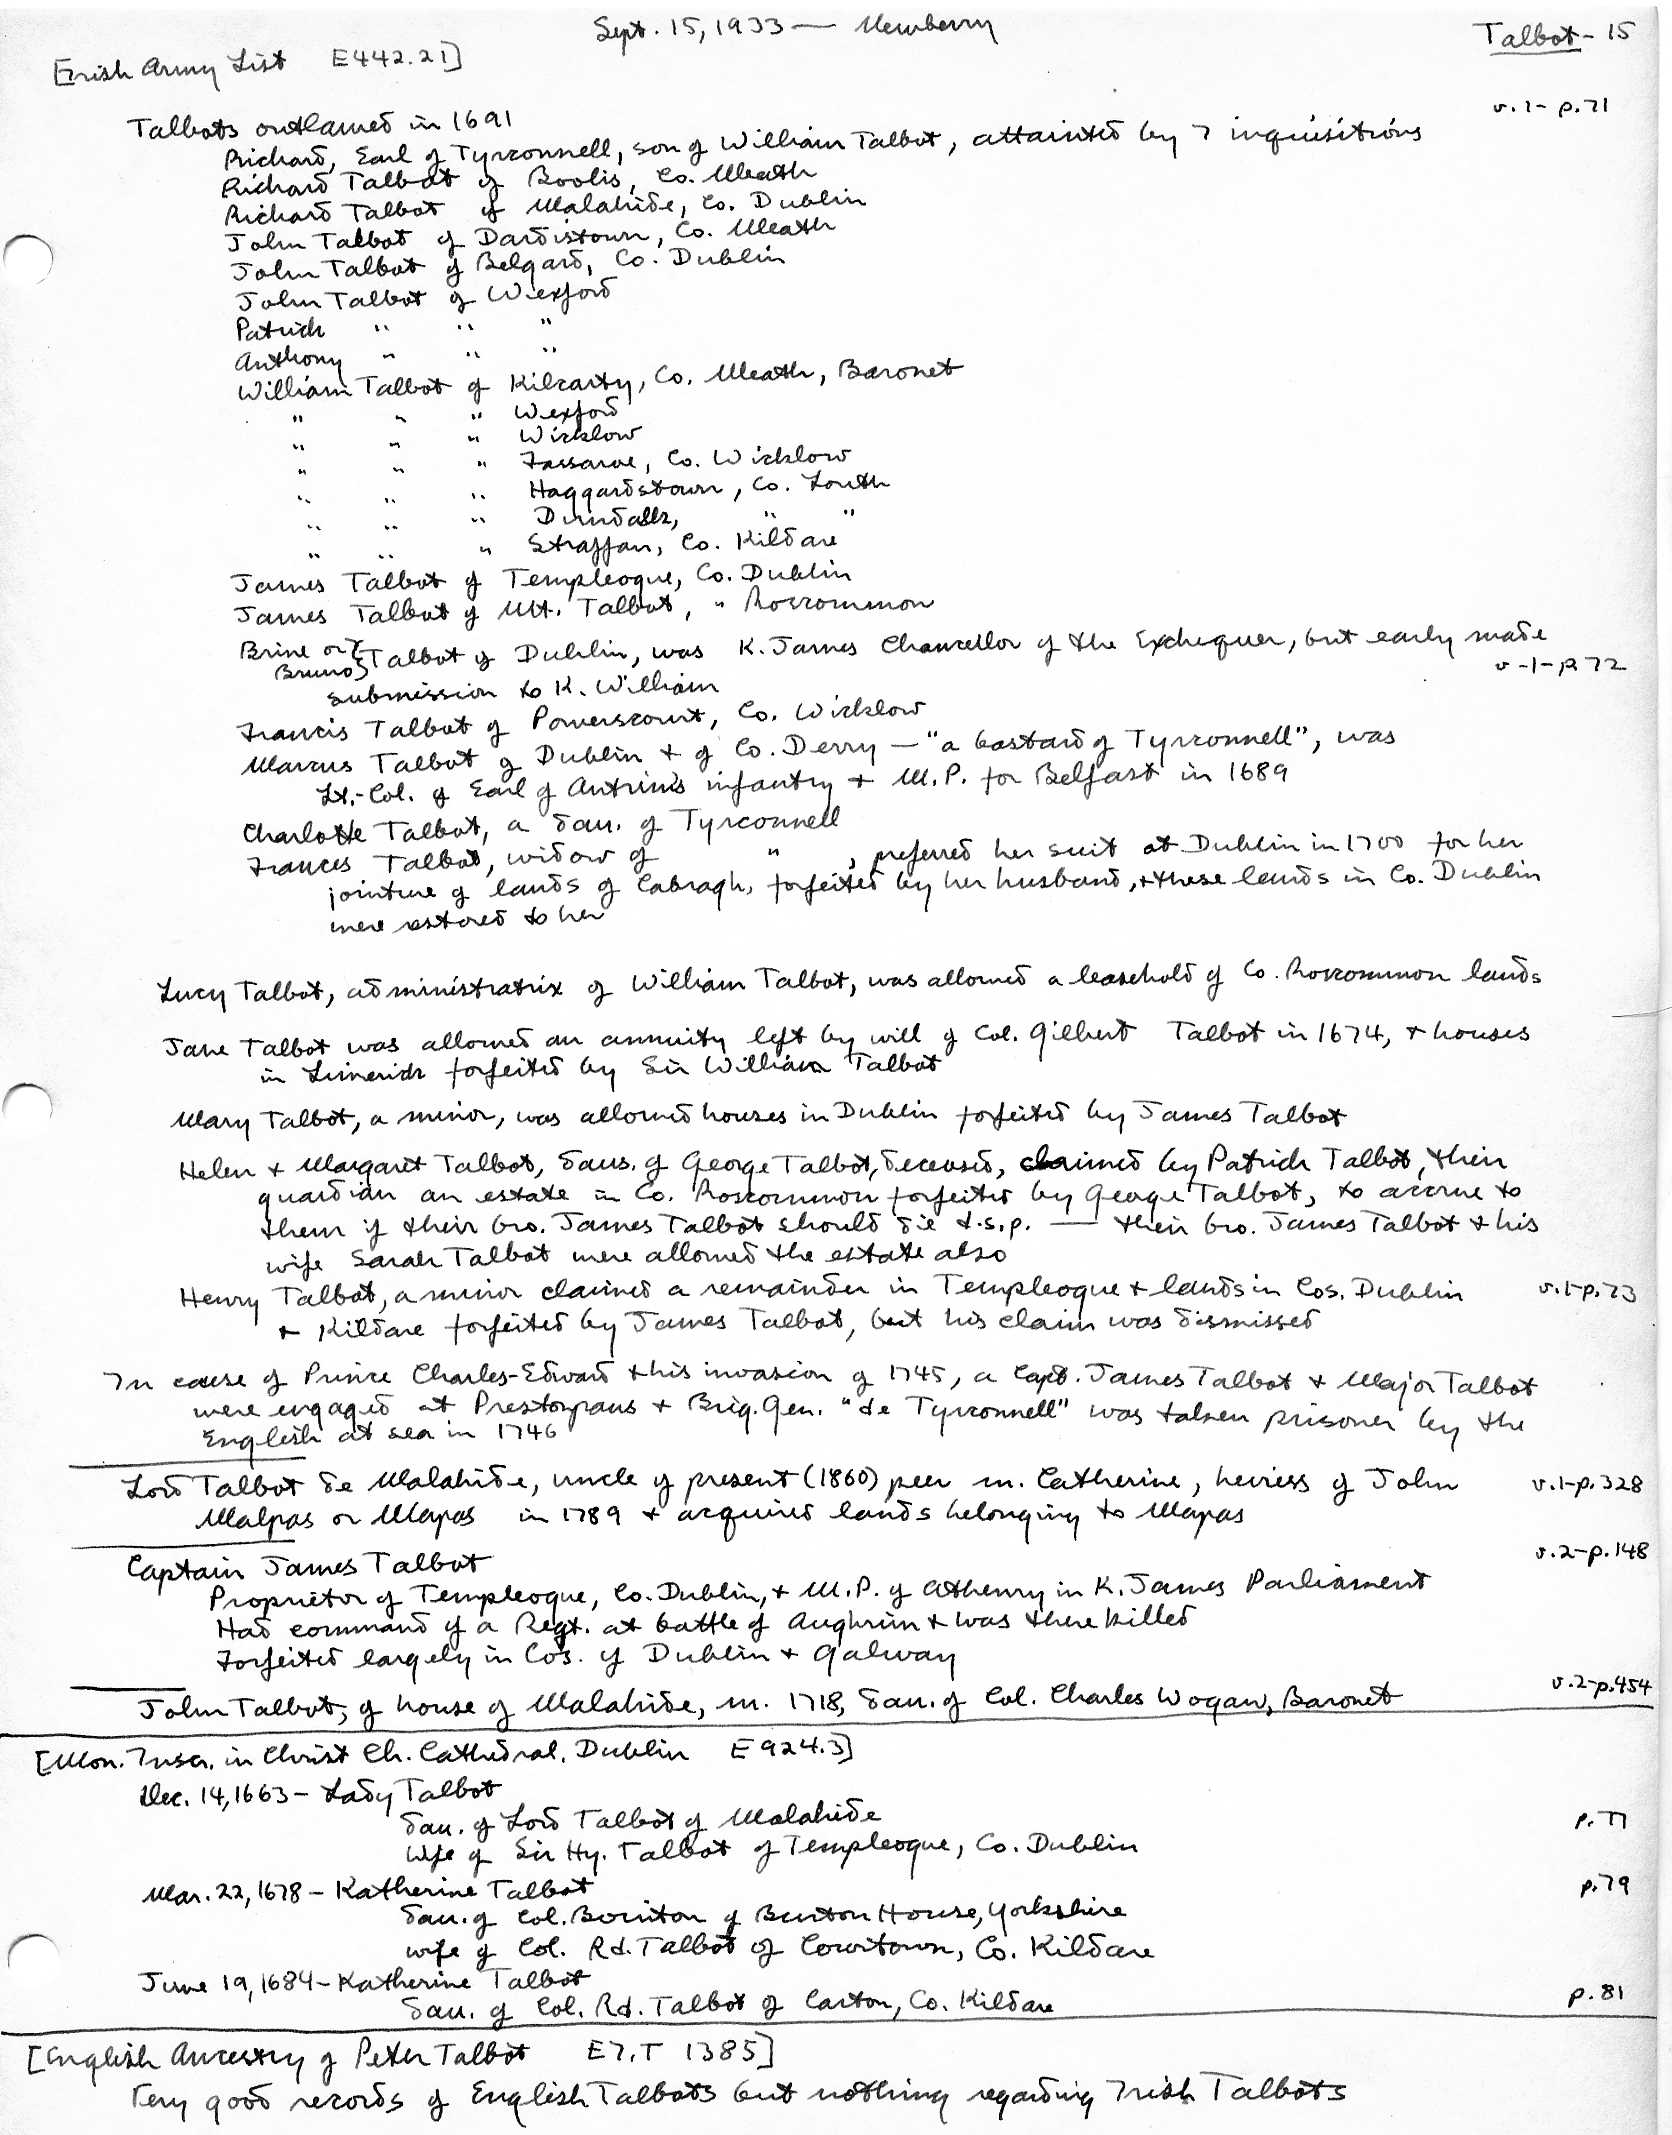 Sept. 15, 1933 — Newberry
Talbot - 15
[Irish Army List E442.21]
v.1 - p.71
Talbots outlawed in 1691
Richard, Earl of Tyrconnell, son of William Talbot, attainted by 7 inquisitions
Richard Talbot of Boolis, Co. Meath
Richard Talbot of Malahide, Co. Dublin
John Talbot of Dardistown, Co. Meath
John Talbot of Belgard, Co. Dublin
John Talbot of Wexford
Patrick " " "
Anthony " " "
William Talbot of Kilcarty, Co. Meath, Baronet
" " " Wexford
" " " Wicklow
" " " Fassaroe, Co. Wicklow
" " " Haggardstown, Co. Louth
" " " Dundalk, " "
" " " Straffan, Co. Kildare
James Talbot of Templeogue, Co. Dublin
James Talbot of Mt. Talbot, " Roscommon
Brine or } Talbot of Dublin, was K. James Chancellor of the Exchequer, but early made
Bruno }
v-1-p.72
submission to K. William
Francis Talbot of Powerscourt, Co. Wicklow
Marcus Talbot of Dublin + of Co. Derry — "a bastard of Tyrconnell", was
Lt.-Col. of Earl of Antrim's infantry + M.P. for Belfast in 1689
Charlotte Talbot, a dau. of Tyrconnell
Frances Talbot, widow of " , preferred her suit at Dublin in 1700 for her
jointure of lands of Cabragh, forfeited by her husband, + these lands in Co. Dublin
were restored to her
Lucy Talbot, administratrix of William Talbot, was allowed a leasehold of Co. Roscommon lands
Jane Talbot was allowed an annuity left by will of Col. Gilbert Talbot in 1674, + houses
in Limerick forfeited by Sir William Talbot
Mary Talbot, a minor, was allowed houses in Dublin forfeited by James Talbot
Helen + Margaret Talbot, daus. of George Talbot, deceased, claimed by Patrick Talbot, their
guardian an estate in Co. Roscommon forfeited by George Talbot, to accrue to
them if their bro. James Talbot should die d.s.p. — their bro. James Talbot + his
wife Sarah Talbot were allowed the estate also
Henry Talbot, a minor claimed a remainder in Templeogue + lands in Cos. Dublin
v.1-p.73
+ Kildare forfeited by James Talbot, but his claim was dismissed
In cause of Prince Charles-Edward + his invasion of 1745, a Capt. James Talbot + Major Talbot
were engaged at Prestonpans + Brig. Gen. "de Tyrconnell" was taken prisoner by the
English at sea in 1746
Lord Talbot de Malahide, uncle of present (1860) peer m. Catherine, heiress of John
v.1-p.328
Malpas or Mapas in 1789 + acquired lands belonging to Mapas
Captain James Talbot
v.2-p.148
Proprietor of Templeogue, Co. Dublin, + M.P. of Athenry in K. James Parliament
Had command of a Regt. at battle of Aughrim + was there killed
Forfeited largely in Cos. of Dublin + Galway
John Talbot, of house of Malahide, m. 1718, dau. of Col. Charles Wogan, Baronet
v.2-p.454
[Mon. Inscr. in Christ Ch. Cathedral, Dublin E924.3]
Dec. 14, 1663 - Lady Talbot
dau. of Lord Talbot of Malahide
p. 77
wife of Sir Hy. Talbot of Templeogue, Co. Dublin
Mar. 22, 1678 - Katherine Talbot
p. 79
dau. of Col. Bointon of Burton House, Yorkshire
wife of Col. Rd. Talbot of Cowitown, Co. Kildare
June 19, 1684 - Katherine Talbot
dau. of Col. Rd. Talbot of Carton, Co. Kildare
p. 81
[English Ancestry of Peter Talbot E7.T 1385]
Very good records of English Talbots but nothing regarding Irish Talbots